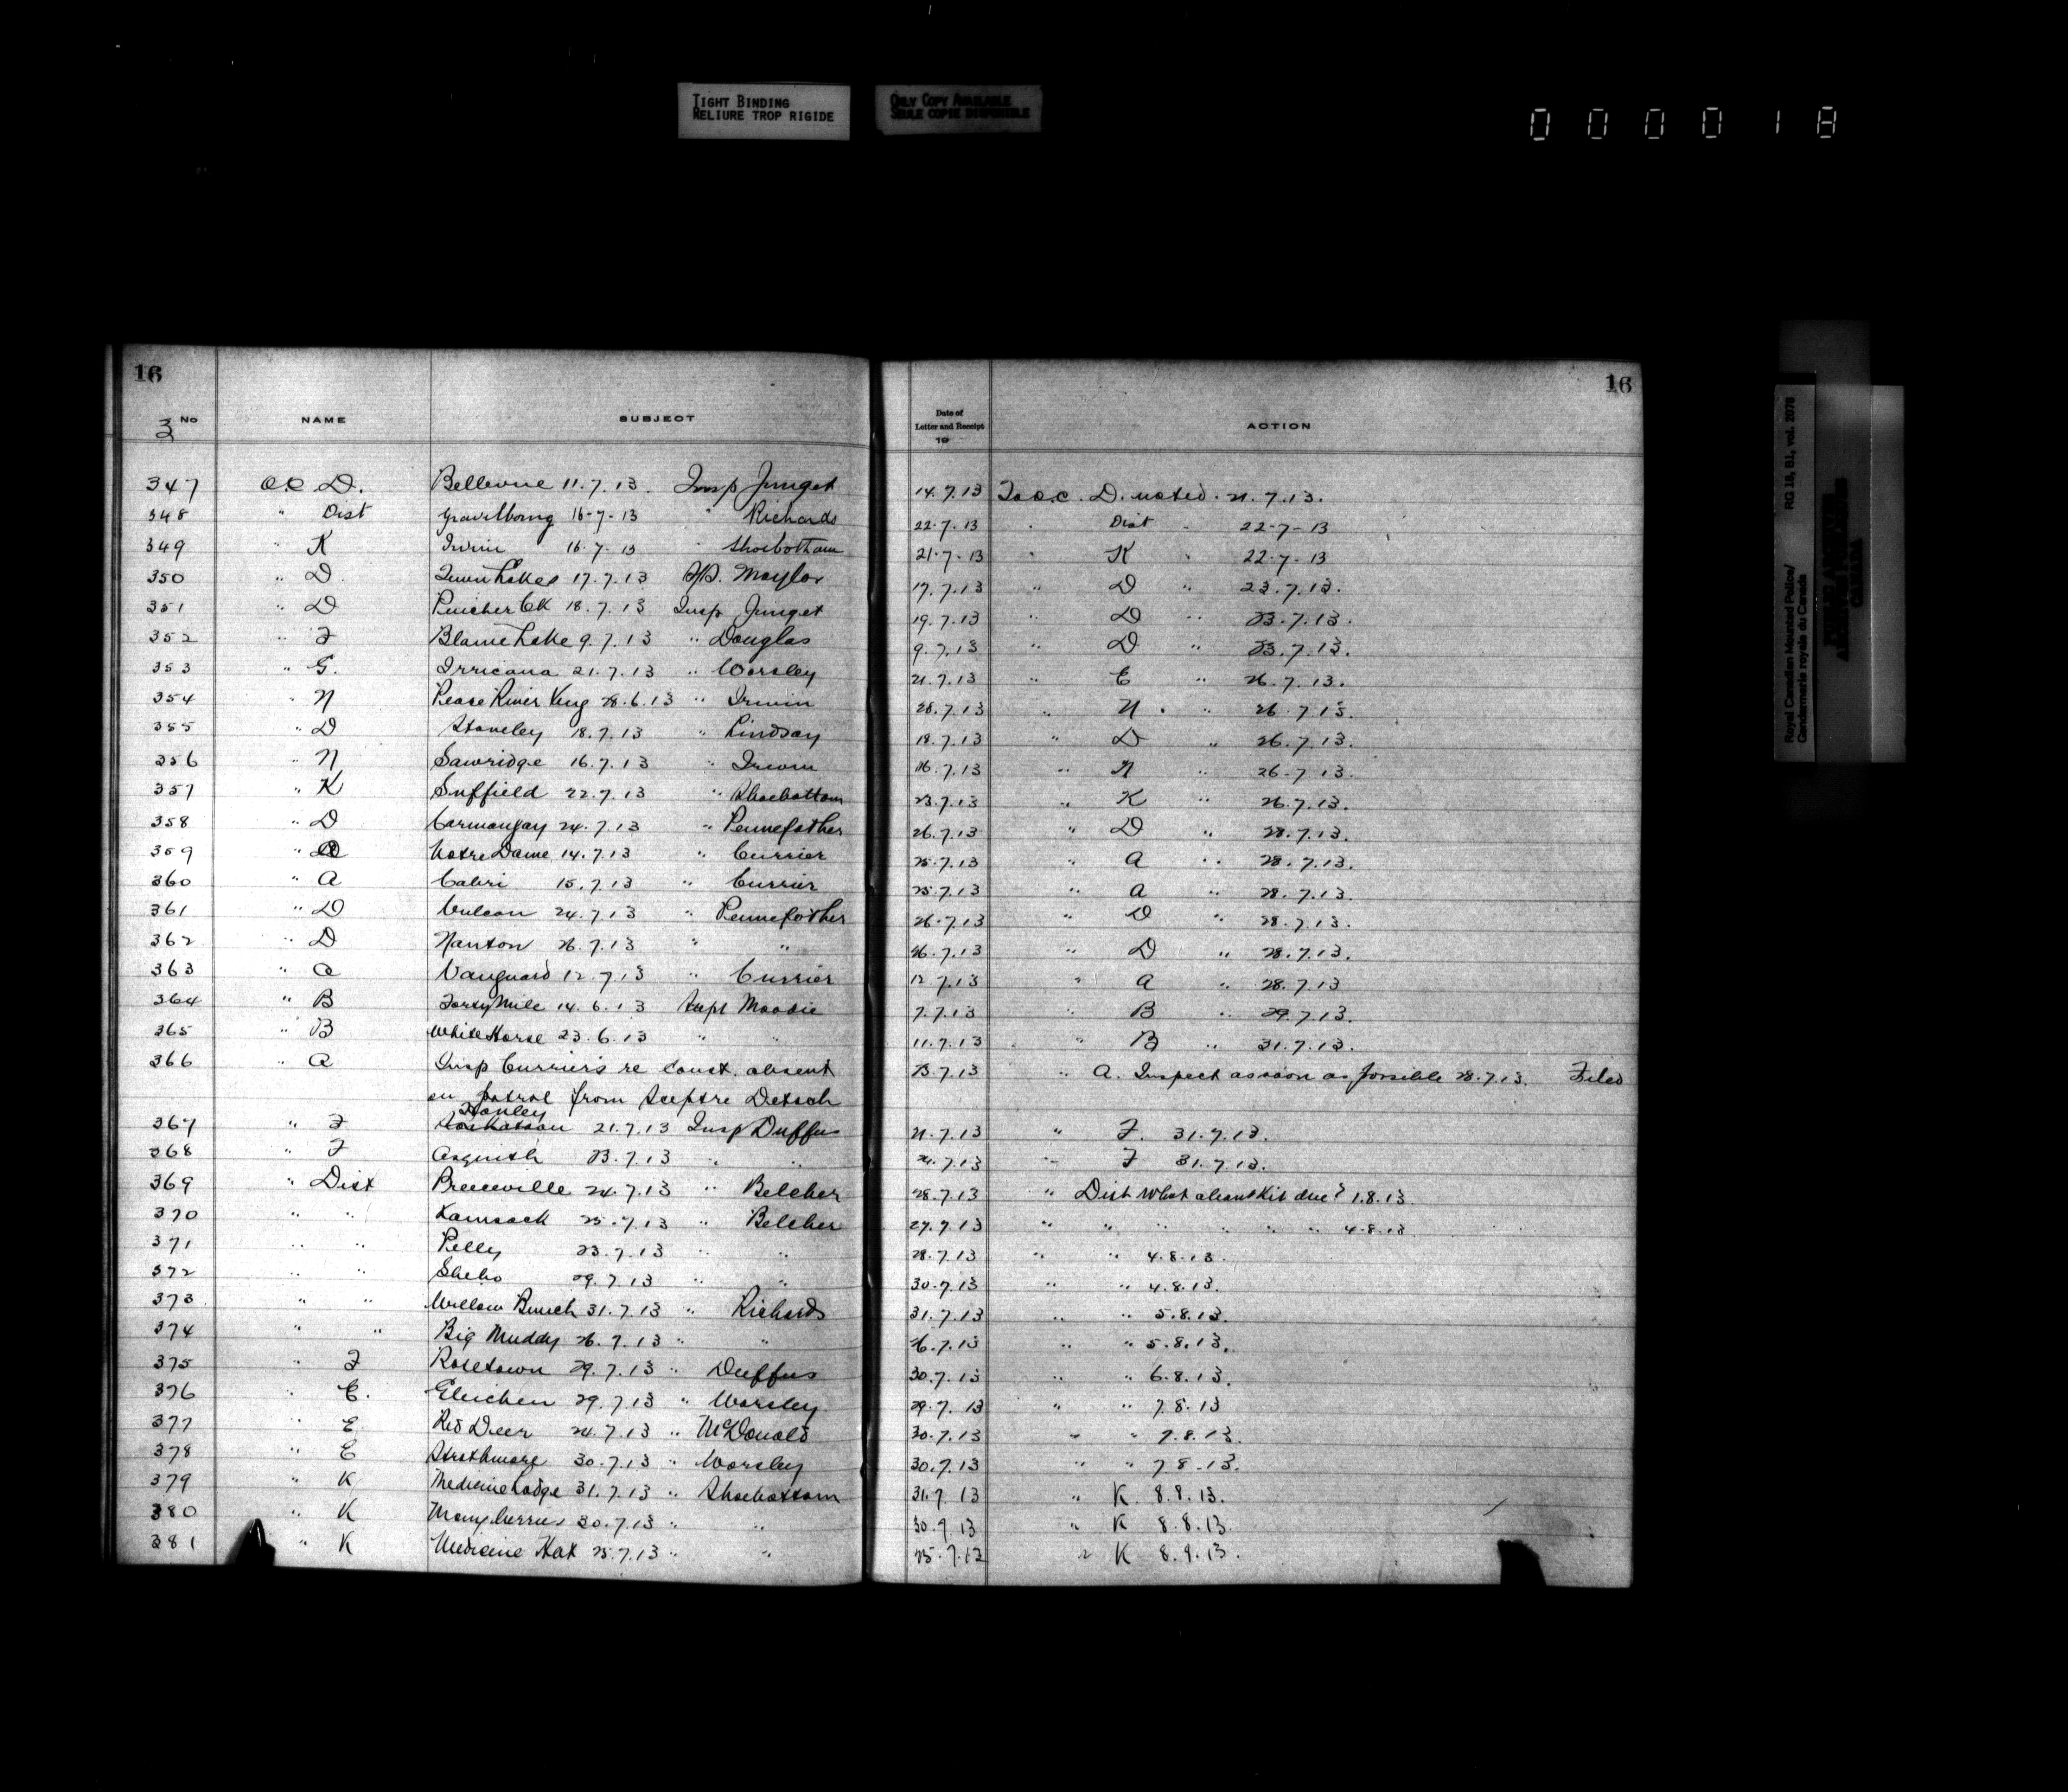 TIGHT BINDING
RELIURE TROP RIGIDE
ONLY COPY AVAILABLE
SEULE COPIE DISPONIBLE
000018
Royal Canadian Mounted Police/ RG 18, B1, vol. 2078
Gendarmerie royale du Canada
16 16
3 No NAME SUBJECT Date of Letter and Receipt 19 ACTION
347 O.C. D. Bellevue 11.7.13. Insp Junget 14.7.13 To O.C. D. noted. 21.7.13.
348 " Dist Gravelbourg 16-7-13 " Richards 22.7.13 " Dist " 22-7-13
349 " K Irvin 16.7.13 " Shoebotham 21.7.13 " K " 22.7.13
350 " D Twin Lakes 17.7.13 17.7.13 " D " 23.7.13.
351 " D Pincher Ck 18.7.13 Insp Junget 19.7.13 " D " 23.7.13.
352 " F Blaine Lake 9.7.13 " Douglas 9.7.13 " D " 23.7.13.
353 " G. Irricana 21.7.13 " Worsley 21.7.13 " E " 26.7.13.
354 " N Peace River Xing 28.6.13 " Irwin 28.7.13 " N. " 26.7.13.
355 " D Staveley 18.7.13 " Lindsay 18.7.13 " D " 26.7.13.
356 " N Sawridge 16.7.13 " Irwin 16.7.13 " N " 26.7.13.
357 " K Suffield 22.7.13 " Shoebottom 23.7.13 " K " 26.7.13.
358 " D Carmangay 24.7.13 " Pennefather 26.7.13 " D " 28.7.13.
359 " A Notre Dame 14.7.13 " Currier 25.7.13 " A " 28.7.13.
360 " A Cabri 15.7.13 " Currier 25.7.13 " A " 28.7.13.
361 " D Vulcan 24.7.13 " Pennefather 26.7.13 " D " 28.7.13.
362 " D Nanton 26.7.13 " " 26.7.13 " D " 28.7.13.
363 " A Vanguard 12.7.13 " Currier 12.7.13 " A " 28.7.13
364 " B Forty Mile 14.6.13 Supt Moodie 7.7.13 " B " 29.7.13.
365 " B White Horse 23.6.13 " " 11.7.13 " B " 31.7.13.
366 " A Insp Currier's re Const. absent 23.7.13 " A. Inspect as soon as possible 28.7.13. Filed
on patrol from Sceptre Detach
Hanley
367 " F Saskatoon 21.7.13 Insp Duffus 21.7.13 " F. 31.7.13.
368 " F Asquith 23.7.13 " " 24.7.13 " F 31.7.13.
369 " Dist Preeceville 24.7.13 " Belcher 28.7.13 " Dist What about Kit due? 1.8.13
370 " " Kamsack 25.7.13 " Belcher 27.7.13 " " " " " " 4.8.13
371 " " Pelly 23.7.13 " " 28.7.13 " " 4.8.13.
372 " " Sheho 29.7.13 " " 30.7.13 " " 4.8.13.
373 " " Willow Bunch 31.7.13 " Richards 31.7.13 " " 5.8.13.
374 " " Big Muddy 26.7.13 " " 26.7.13 " " 5.8.13.
375 " F Rosetown 29.7.13 " Duffus 30.7.13 " " 6.8.13.
376 " E. Gleichen 29.7.13 " Worsley 29.7.13 " " 7.8.13
377 " E Red Deer 24.7.13 " McDonald 30.7.13 " " 7.8.13.
378 " E Strathmore 30.7.13 " Worsley 30.7.13 " " 7.8.13.
379 " K Medicine Lodge 31.7.13 " Shoebottom 31.7.13 " K. 8.8.13.
380 " K Manyberries 30.7.13 " " 30.7.13 " K 8.8.13.
381 " K Medicine Hat 25.7.13 " " 25.7.12 " K 8.9.13.